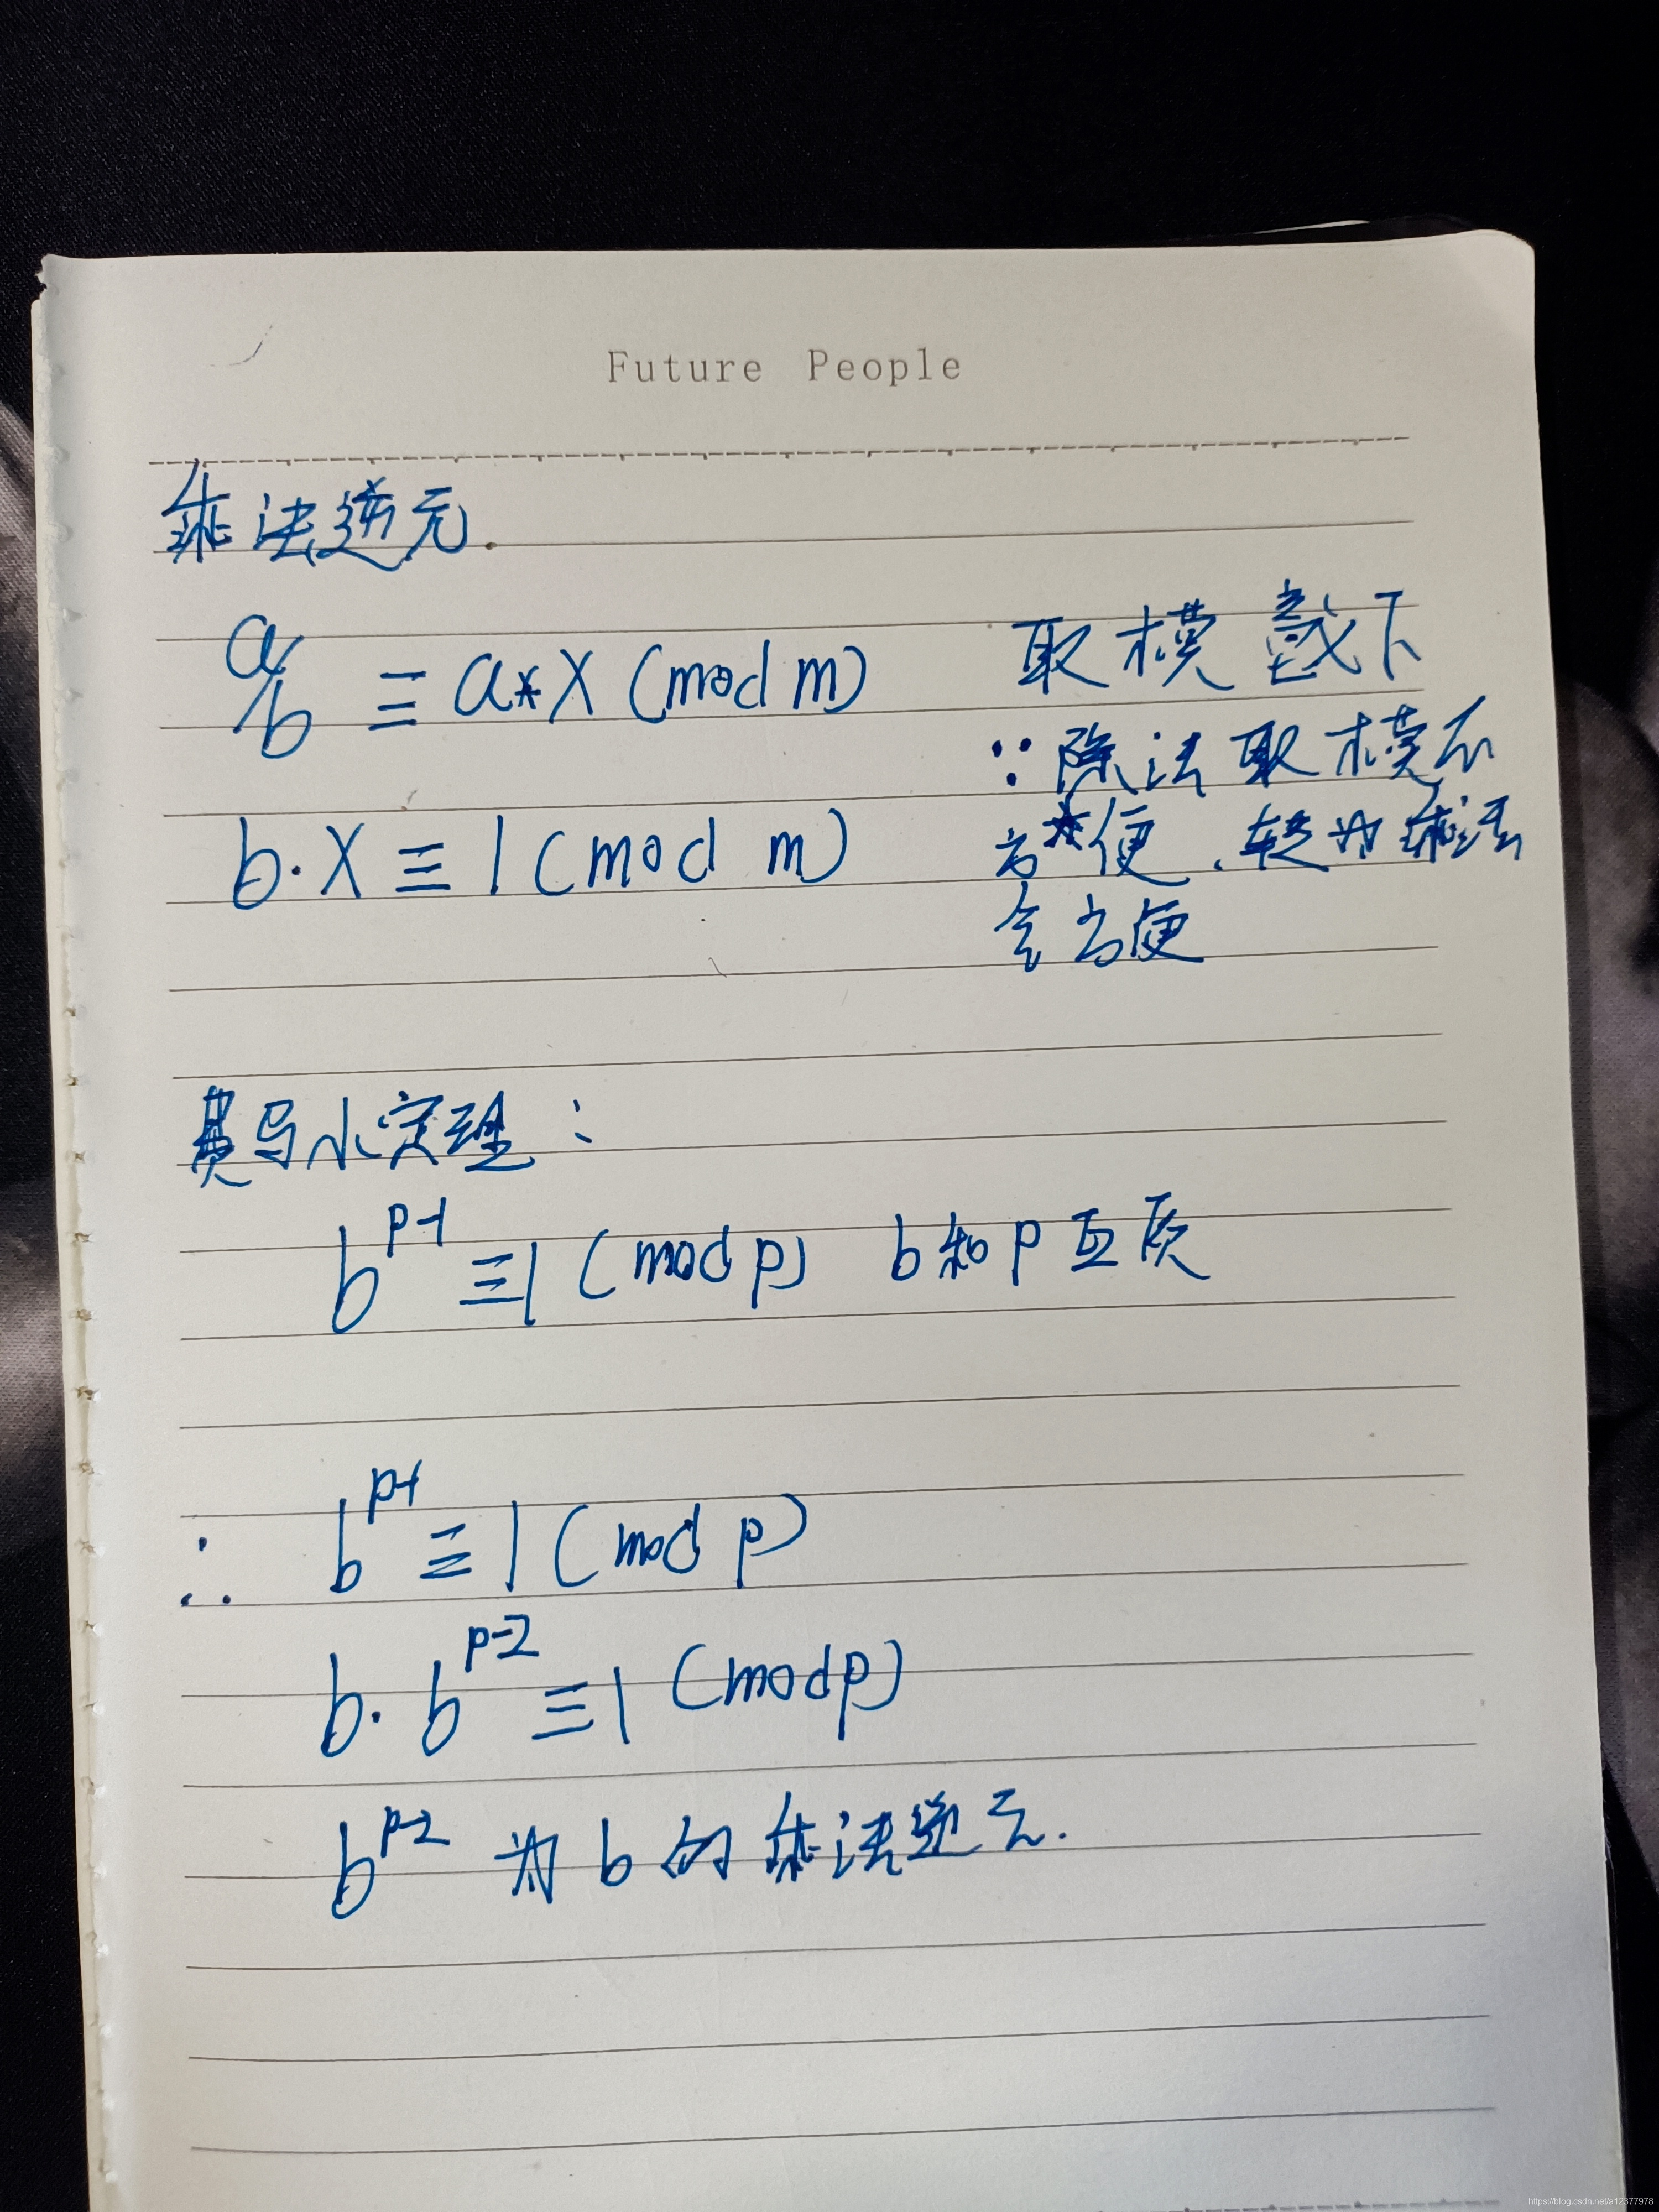 Future People
乘法逆元.
a/b ≡ a*X (mod m)
取模意义下
∵除法取模不
方便,转为乘法
会方便
b·X ≡ 1 (mod m)
费马小定理:
b^{p-1} ≡1 (mod p) b和p互质
∴ b^{p-1} ≡ 1 (mod p)
b·b^{p-2} ≡1 (mod p)
b^{p-2} 为b的乘法逆元.
https://blog.csdn.net/a12377978